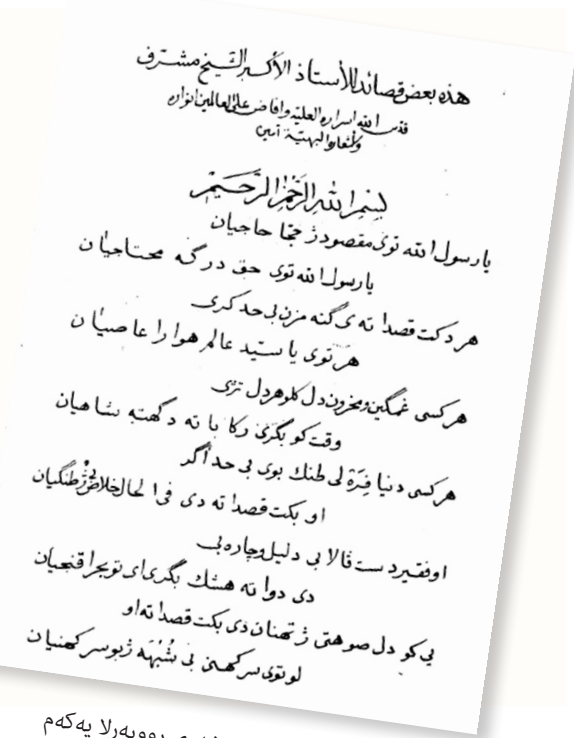 هذه بعض قصائد للأستاذ الأكبر الشيخ مشرف
قدس الله اسراره العلية وافاض على العالمين انواره
آمين
بسم الله الرحمن الرحيم
يا رسول الله توى مقصود ژ حجا حاجيان
يا رسول الله توى حق درگه محتاجيان
هر دكت قصدا ته ى گنه مزن بى حد كرى
هر توى يا سيد عالم هوارا عاصيان
هر كسى غمگين ومحزون دل كلو هردل ترى
وقت كو بگرى ركا با ته دگهته شاهيان
هر كسى دنيا فره لى طنك بوى بى حد اگر
او بكت قصدا ته دى فى الحال خلاص بى ژ طنگيان
او فقير دست ڤالا بى دليل وچاره بى
دى دوا ته هشك بگرى اى تو يجرا قنجيان
بى كو دل صوهتى ژ تهنان دى بكت قصدا ته او
لو توى سركهنى بى شبهه ژبو سركهنيان
ڕووپەرلا یەکەم